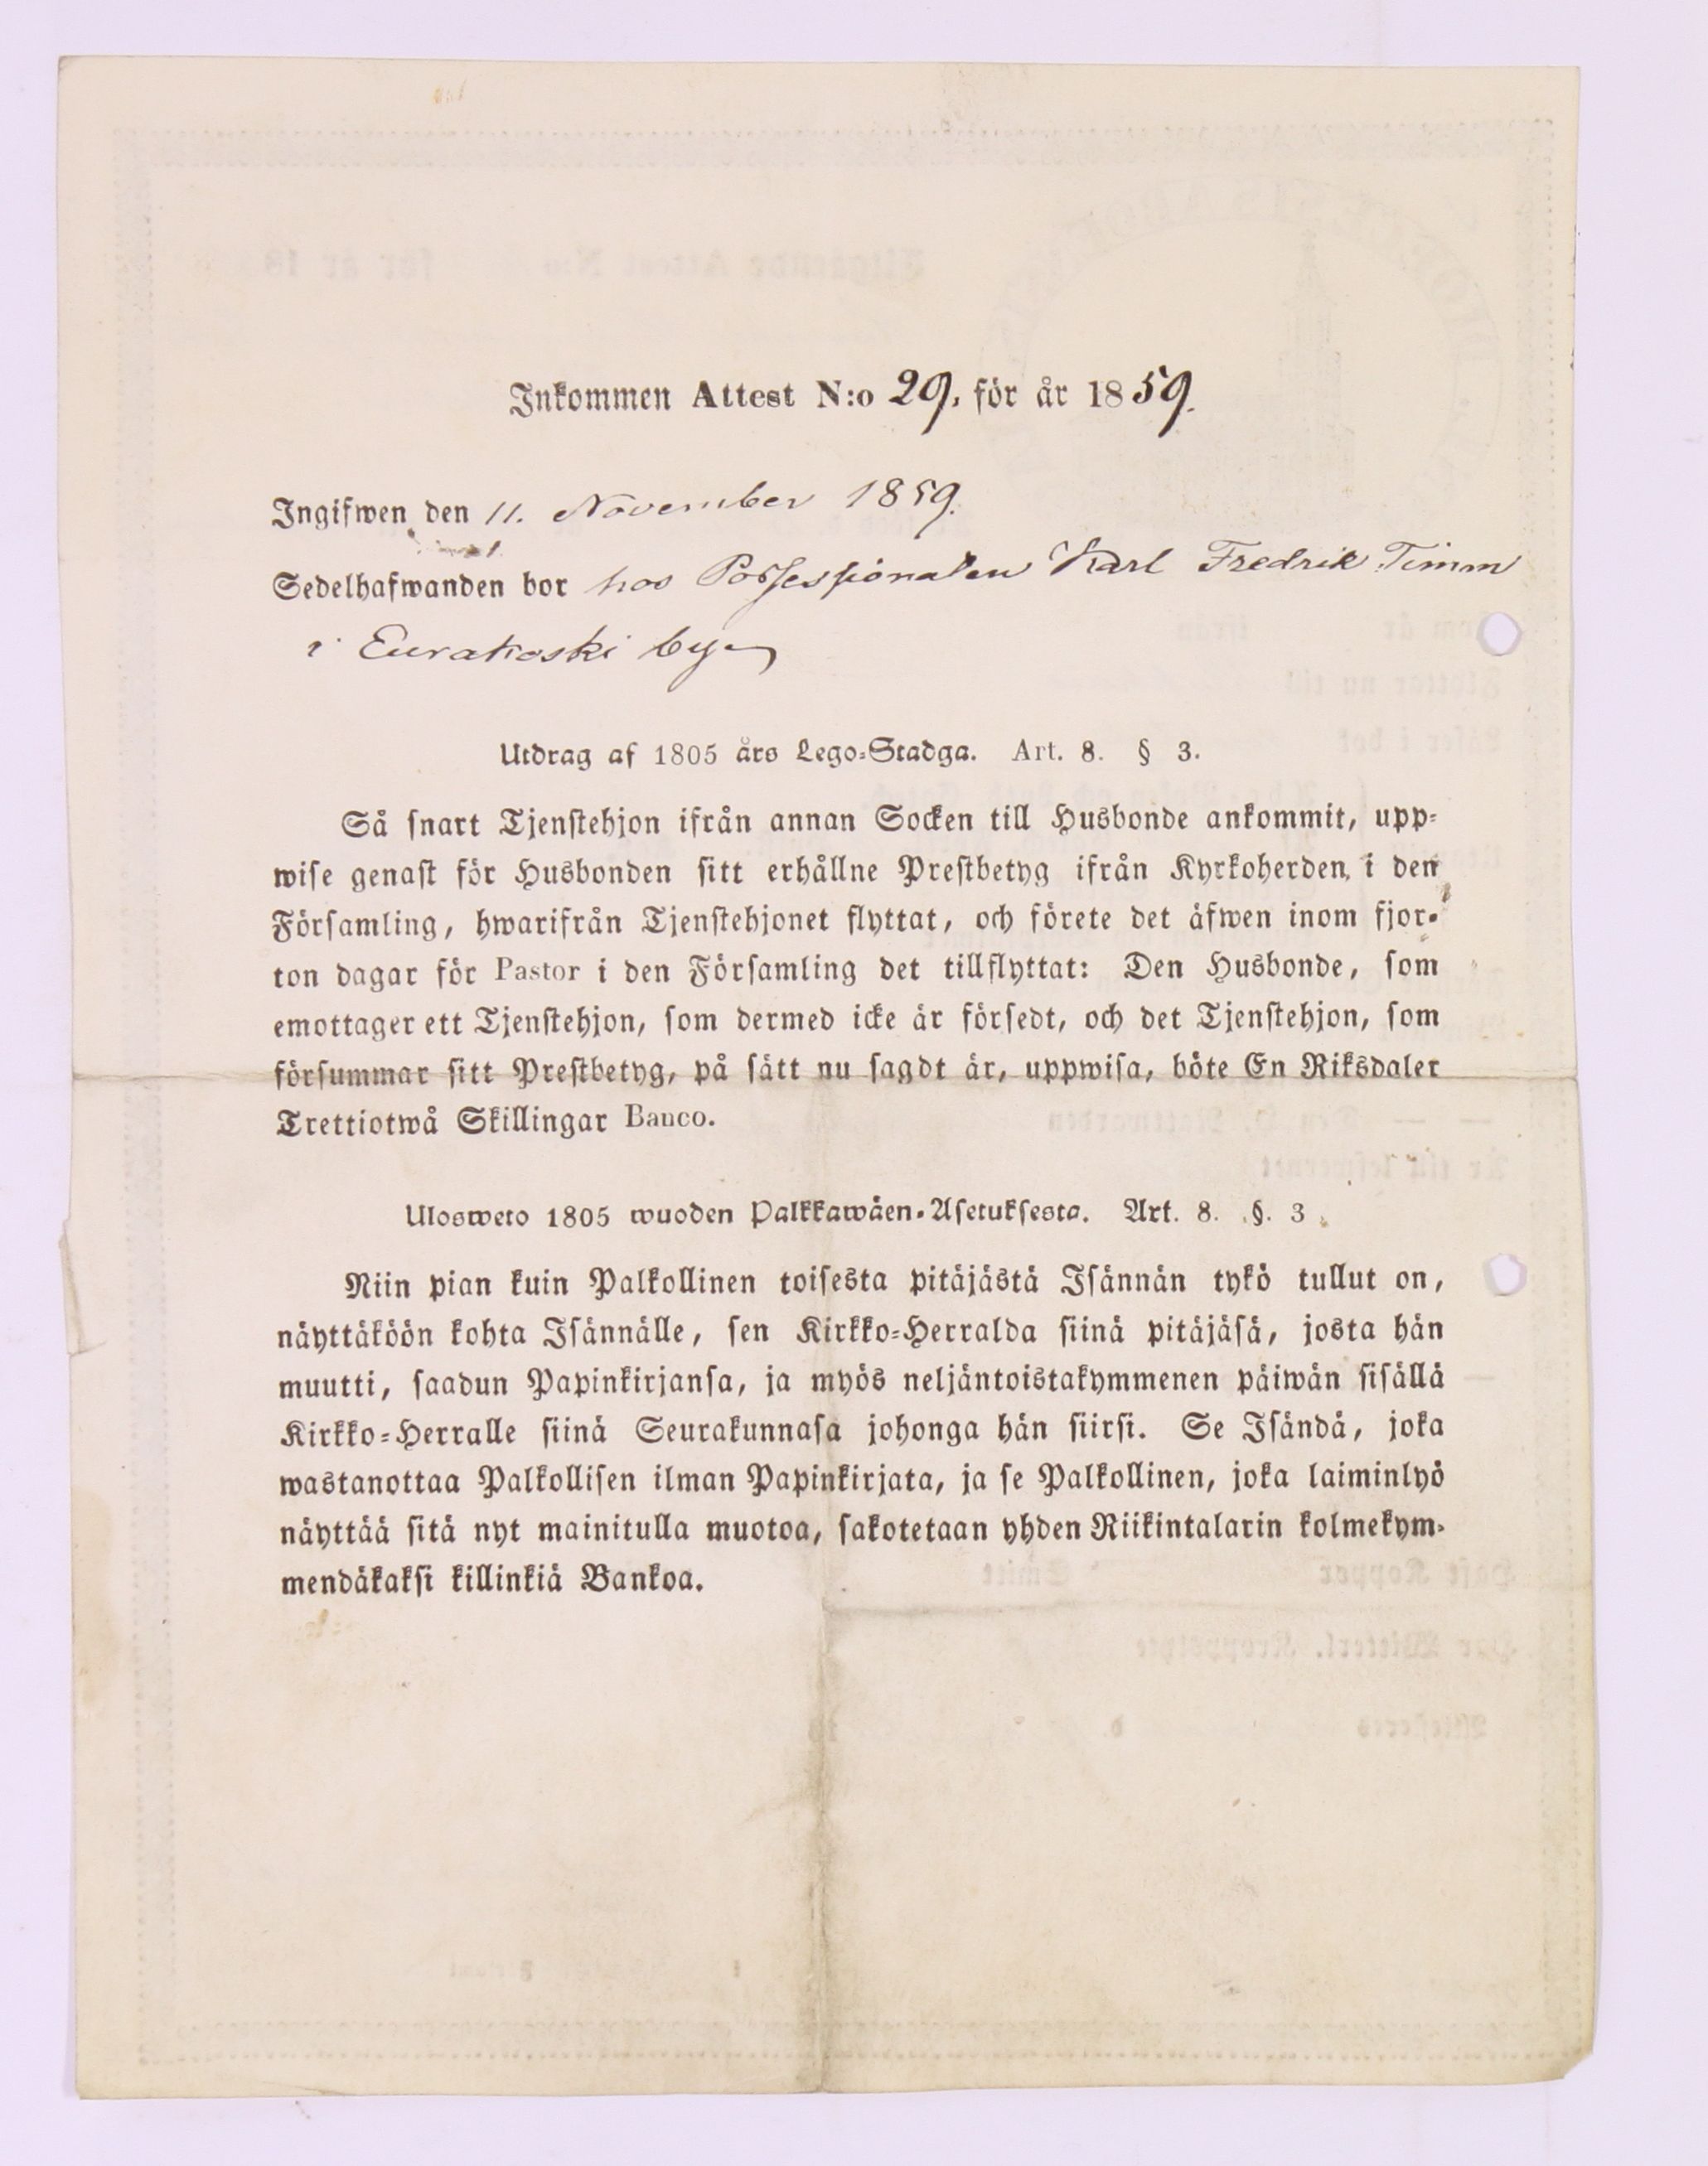 Inkommen Attest N:o 29. för år 1859.
Ingifwen den 11. November 1859.
Sedelhafwanden bor hos Possessionaten Karl Fredrik Timm
i Eurakoski by
Utdrag af 1805 års Lego-Stadga. Art. 8. § 3.
Så snart Tjenstehjon ifrån annan Socken till Husbonde ankommit, upp-
wise genast för Husbonden sitt erhållne Prestbetyg ifrån Kyrkoherden, i den
Församling, hwarifrån Tjenstehjonet flyttat, och förete det äfwen inom fjor-
ton dagar för Pastor i den Församling det tillflyttat: Den Husbonde, som
emottager ett Tjenstehjon, som dermed icke är försedt, och det Tjenstehjon, som
försummar sitt Prestbetyg, på sätt nu sagdt är, uppwisa, böte En Riksdaler
Trettiotwå Skillingar Banco.
Ulosweto 1805 wuoden Palkkawäen-Asetuksesta. Art. 8. §. 3.
Niin pian kuin Palkollinen toisesta pitäjästä Isännän tykö tullut on,
näyttäköön kohta Isännälle, sen Kirkko-Herralda siinä pitäjäsä, josta hän
muutti, saadun Papinkirjansa, ja myös neljäntoistakymmenen päiwän sisällä
Kirkko-Herralle siinä Seurakunnasa johonga hän siirsi. Se Isändä, joka
wastanottaa Palkollisen ilman Papinkirjata, ja se Palkollinen, joka laiminlyö
näyttää sitä nyt mainitulla muotoa, sakotetaan yhden Riikintalarin kolmekym-
mendäkaksi killinkiä Bankoa.